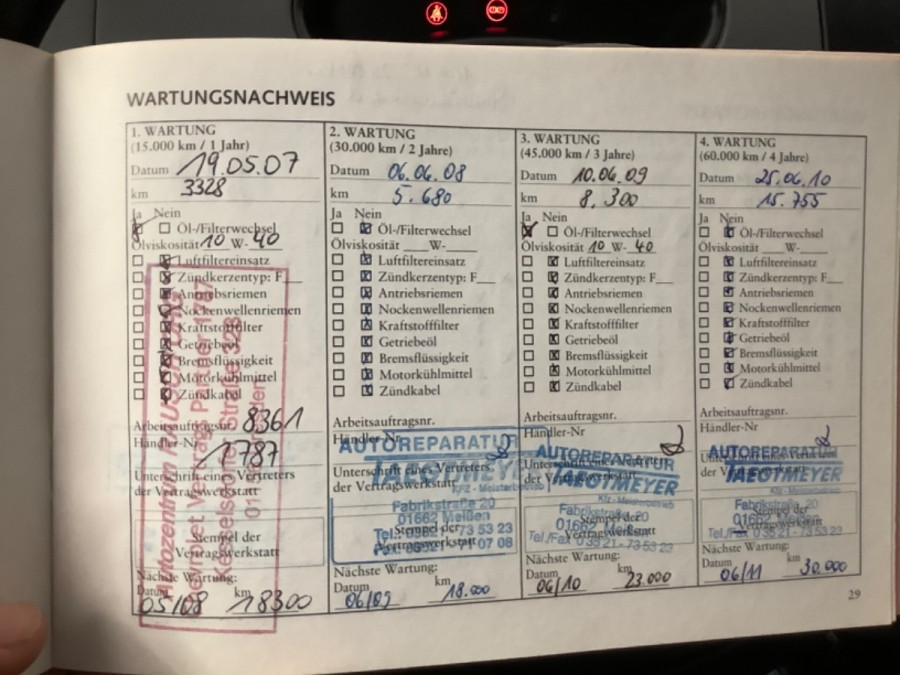 WARTUNGSNACHWEIS
1. WARTUNG
(15.000 km / 1 Jahr)
Datum 19.05.07
km 3328
Ja Nein
Öl-/Filterwechsel
Ölviskosität 10 W- 40
Luftfiltereinsatz
Zündkerzentyp: F
Antriebsriemen
Nockenwellenriemen
Kraftstoffilter
Getriebeöl
Bremsflüssigkeit
Motorkühlmittel
Zündkabel
Arbeitsauftragsnr. 8361
Händler-Nr
1787
Unterschrift eines Vertreters
der Vertragswerkstatt
Stempel der
Vertragswerkstatt
Autozentrum
Chevrolet Vertrags Partner 1787
Kesselsdorfer Straße
Nächste Wartung:
Datum km
05/08 18300
2. WARTUNG
(30.000 km / 2 Jahre)
Datum 06.06.08
km 5.680
Ja Nein
Öl-/Filterwechsel
Ölviskosität W-
Luftfiltereinsatz
Zündkerzentyp: F
Antriebsriemen
Nockenwellenriemen
Kraftstofffilter
Getriebeöl
Bremsflüssigkeit
Motorkühlmittel
Zündkabel
Arbeitsauftragsnr.
Händler-Nr
AUTOREPARATUR
Unterschrift eines Vertreters
TAEGTMEYER
der Vertragswerkstatt
KFZ - Meisterbetrieb
Fabrikstraße 20
01662 Meißen
Stempel der
Vertragswerkstatt
Nächste Wartung:
Datum km
06/09 18.000
3. WARTUNG
(45.000 km / 3 Jahre)
Datum 10.06.09
km 8.300
Ja Nein
Öl-/Filterwechsel
Ölviskosität 10 W- 40
Luftfiltereinsatz
Zündkerzentyp: F
Antriebsriemen
Nockenwellenriemen
Kraftstofffilter
Getriebeöl
Bremsflüssigkeit
Motorkühlmittel
Zündkabel
Arbeitsauftragsnr.
Händler-Nr
AUTOREPARATUR
TAEGTMEYER
der Vertragswerkstatt
Kfz - Meisterbetrieb
Fabrikstraße 20
01662 Meißen
Stempel der
Vertragswerkstatt
Tel./Fax 0 35 21 - 73 53 23
Nächste Wartung:
Datum km
06/10 23.000
4. WARTUNG
(60.000 km / 4 Jahre)
Datum 25.06.10
km 15.755
Ja Nein
Öl-/Filterwechsel
Ölviskosität W-
Luftfiltereinsatz
Zündkerzentyp: F
Antriebsriemen
Nockenwellenriemen
Kraftstofffilter
Getriebeöl
Bremsflüssigkeit
Motorkühlmittel
Zündkabel
Arbeitsauftragsnr.
Händler-Nr
AUTOREPARATUR
TAEGTMEYER
Kfz - Meisterbetrieb
Fabrikstraße 20
01662 Meißen
Stempel der
Vertragswerkstatt
Tel./Fax 0 35 21 - 73 53 23
Nächste Wartung:
Datum km
06/11 30.000
29